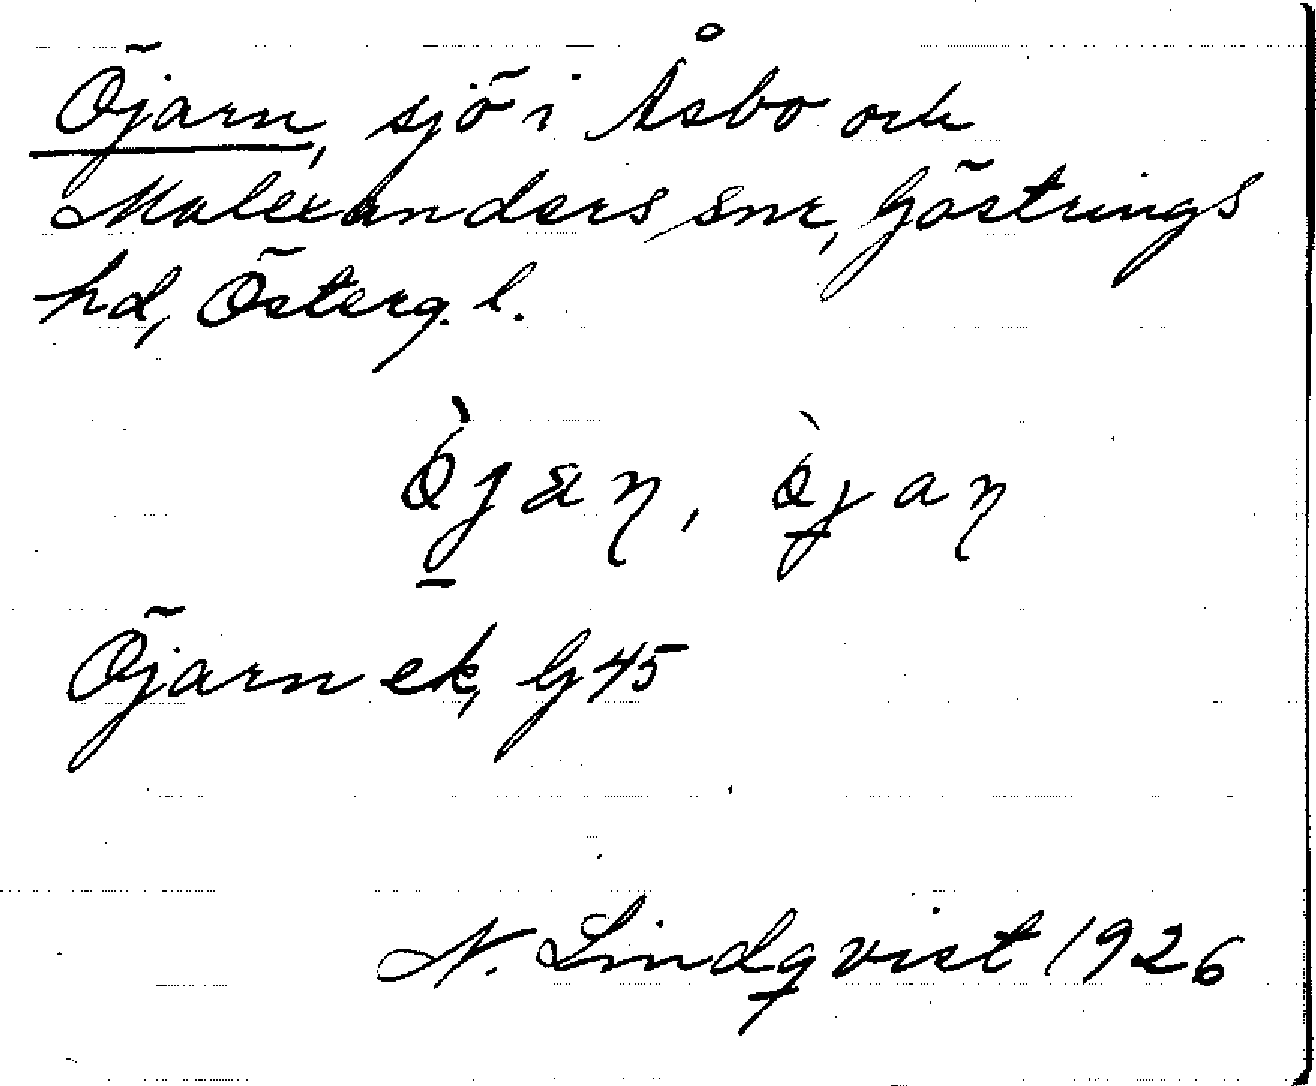 Öjarn, sjö i Åsbo och
Malexanders snr, Göstrings
hd, Österg. l.
Öjarn ek, G 45
N. Lindqvist 1926